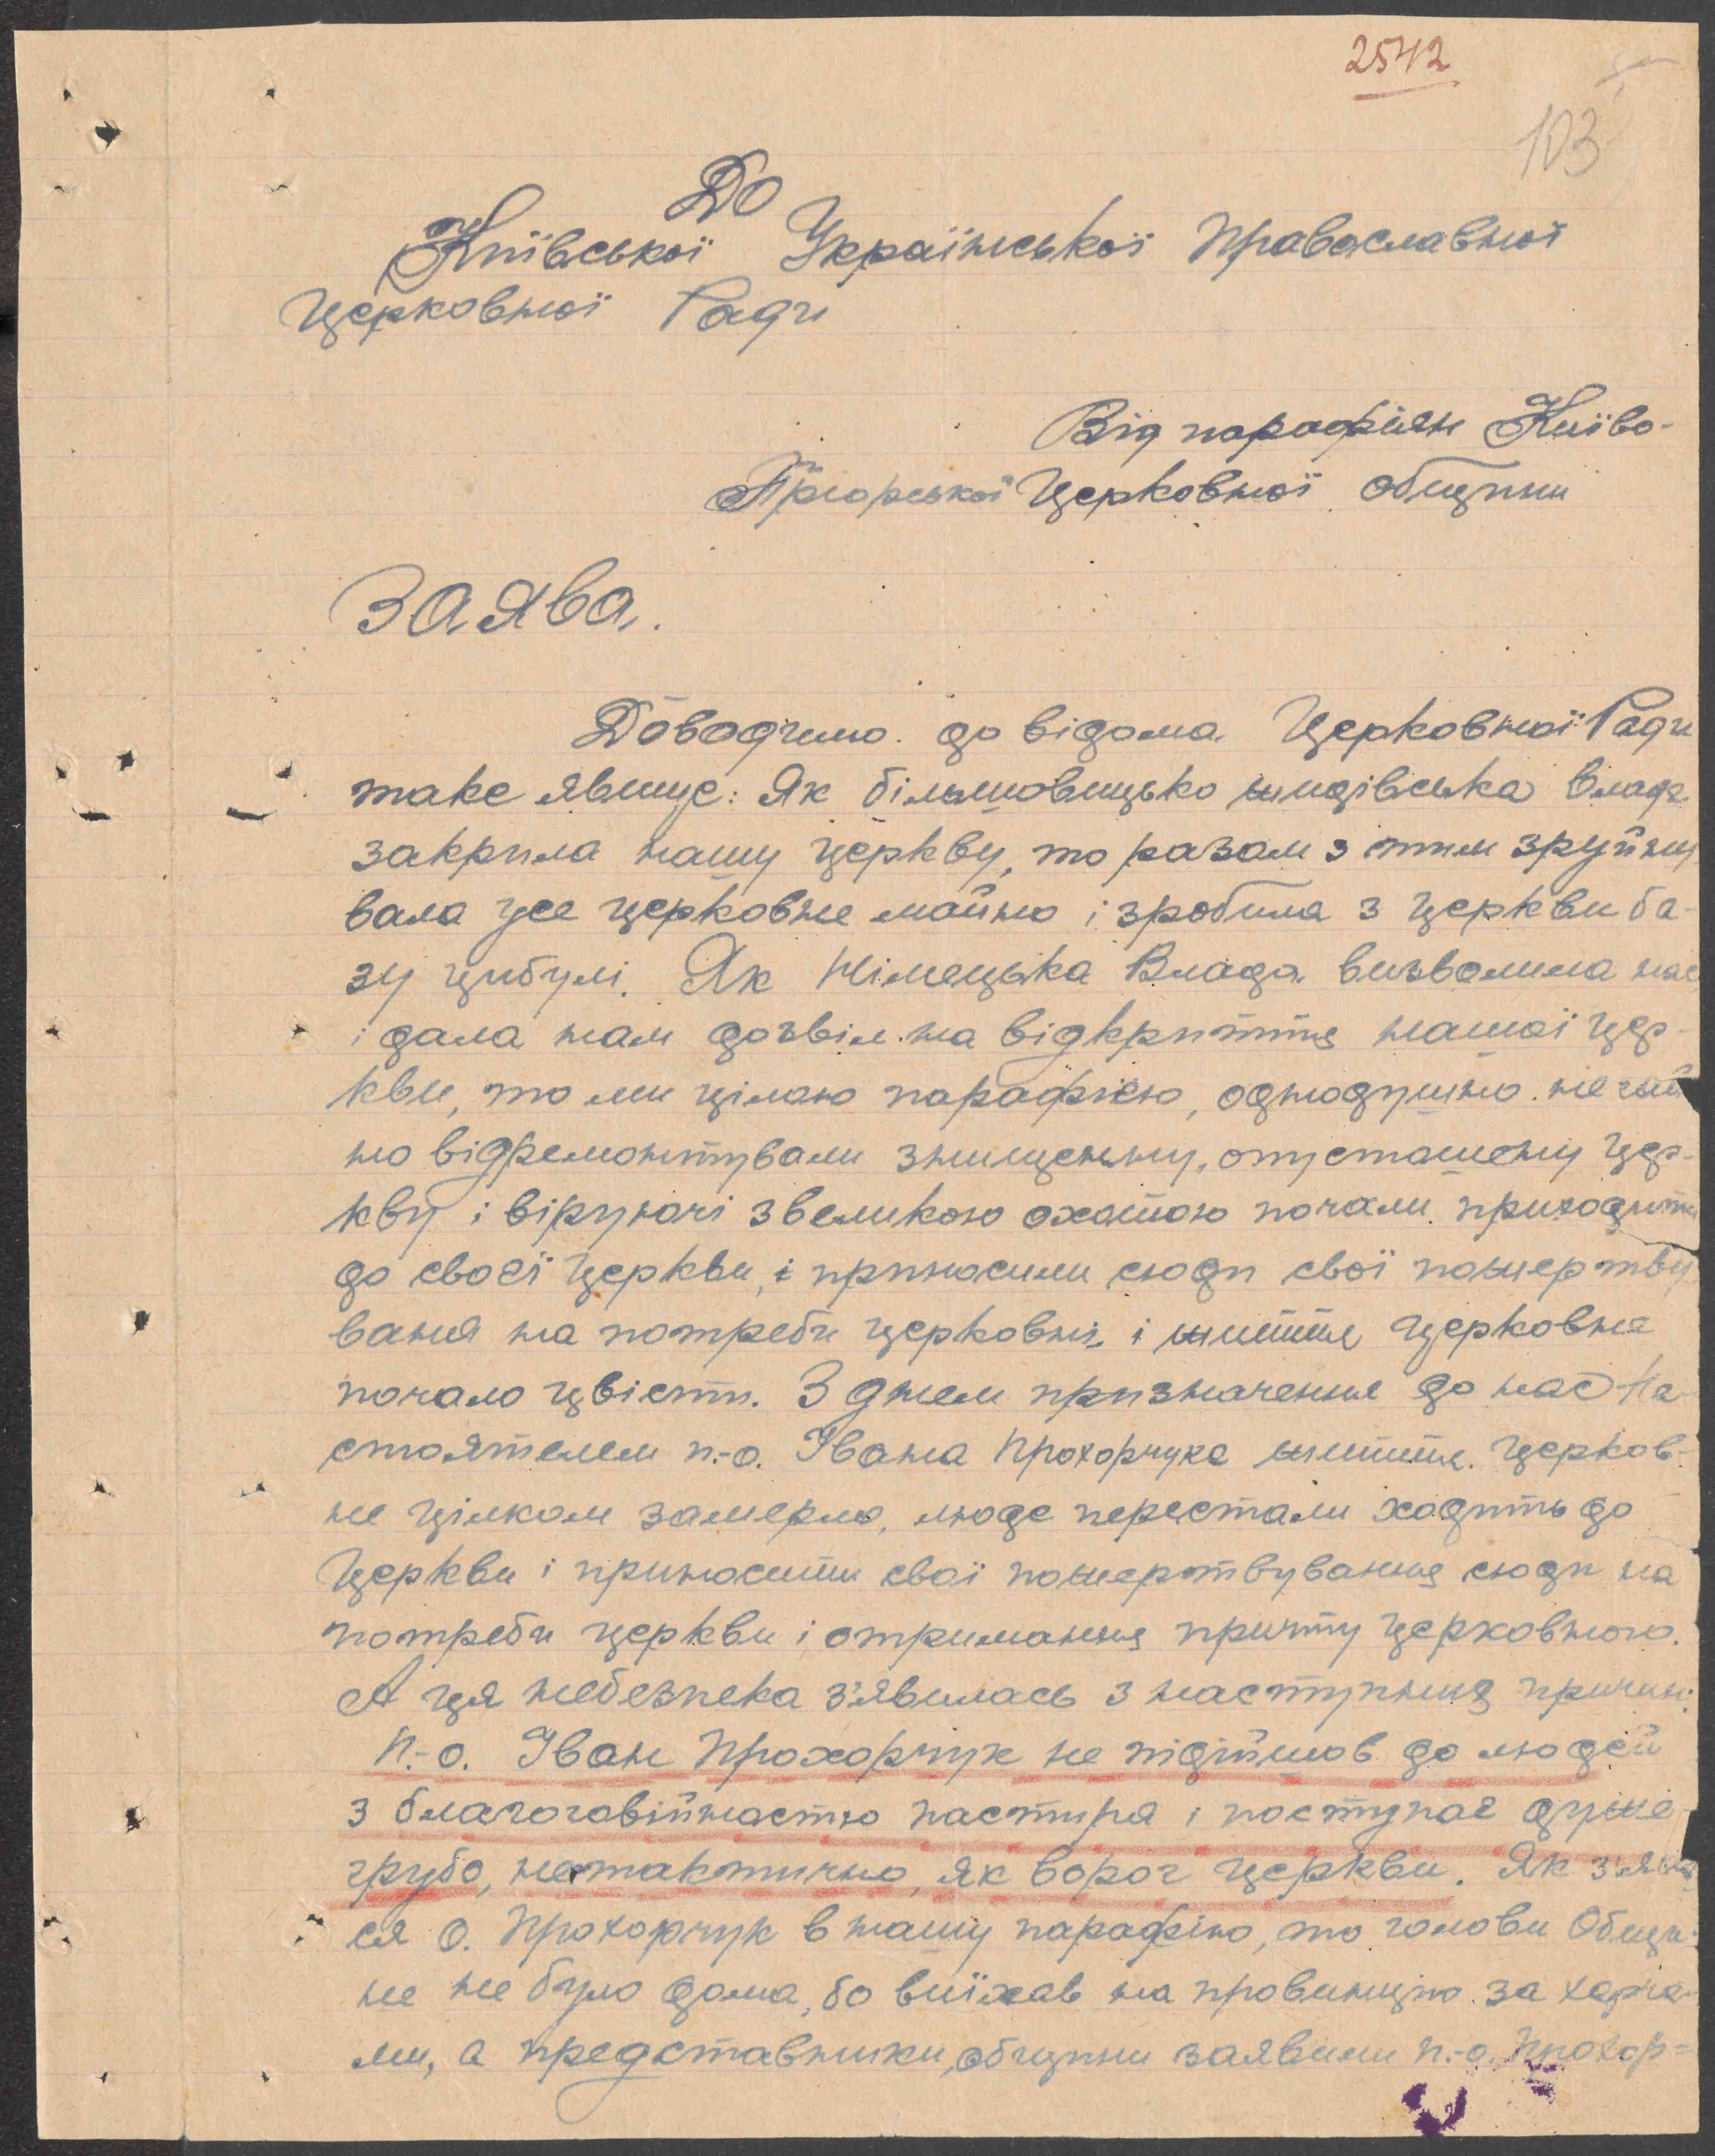 2542
103
До
Київської Української Православної
Церковної Ради
Від парафіян Київо-
Пріорської Церковної общини
Заява.
Доводимо до відома Церковної Ради
таке явище: Як більшовицько жидівська влада
закрила нашу церкву, то разом з тим зруйну
вала усе церковне майно і зробила з церкви ба-
зу цибулі. Як Німецька Влада визволила нас
і дала нам дозвіл на відкриття нашої цер-
кви, то ми цілою парафією, однодушно негай
но відремонтували знищенну, опусташену цер-
кву і віруючі з великою охотою почали приходити
до своєї церкви, і приносили сюди свої пожертву
вання на потреби церковні, і життя церковне
почало цвісти. З днем призначення до нас На
стоятелем п.-о. Івана Прохорчука життя церков-
не цілком замерло, люде перестали ходить до
Церкви і приносити свої пожертвування сюди на
потреби церкви і отримання причту церковного.
А ця небезпека з'явилась з наступних причин:
п.-о. Іван Прохорчук не підійшов до людей
з благоговійностю пастиря і поступає дуже
грубо, нетактично, як ворог церкви. Як з'яви
ся о. Прохорчук в нашу парафію, то голови Общи-
не не було дома, бо виїхав на провинцію за харча
ми, а представники общини заявили п.-о. Прохор=